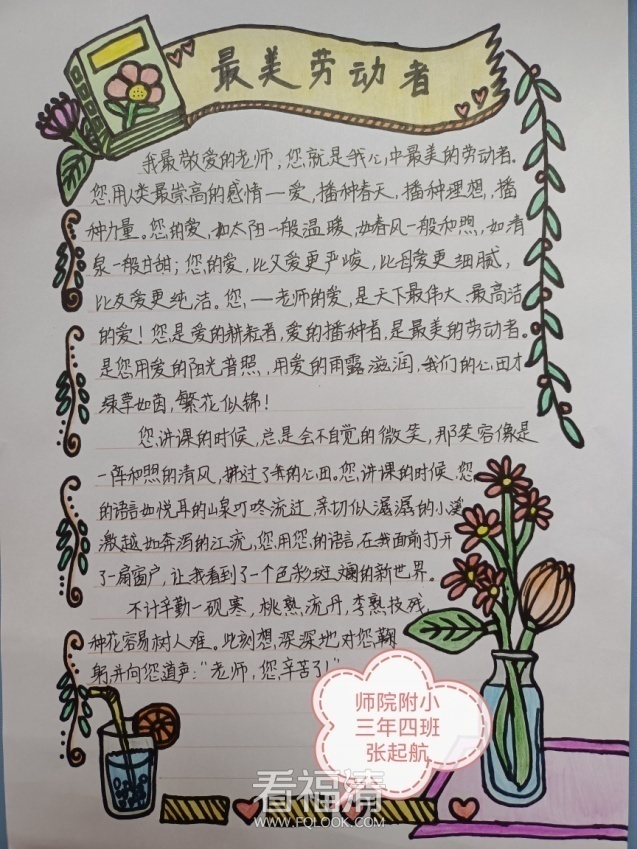 最美劳动者
我最敬爱的老师，您就是我心中最美的劳动者。
您用人类最崇高的感情一爱，播种春天，播种理想，播
种力量。您的爱，如太阳一般温暖，如春风一般和煦，如清
泉一般甘甜；您的爱，比父爱更严峻，比母爱更细腻，
比友爱更纯洁。您，一老师的爱，是天下最伟大、最高洁
的爱！您是爱的耕耘者，爱的播种者，是最美的劳动者。
是您用爱的阳光普照，用爱的雨露滋润，我们的心田才
绿草如茵，繁花似锦！
您讲课的时候，总是会不自觉的微笑，那笑容像是
一阵和煦的清风，拂过了我的心田。您讲课的时候，您
的语言如悦耳的山泉叮咚流过，亲切似潺潺的小溪
激越如奔泻的江流，您用您的语言，在我面前打开
了一扇窗户，让我看到了一个色彩斑斓的新世界。
不计辛勤一砚寒，桃熟流丹，李熟枝残，
种花容易树人难。此刻想，深深地对您鞠
躬，并向您道声：“老师，您辛苦了！”
师院附小
三年四班
张起航
看福清
WWW.FQLOOK.COM